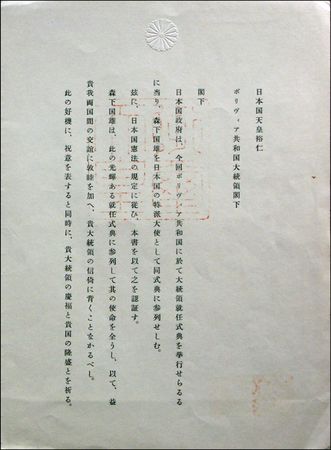 日本国天皇裕仁
ボリヴィア共和国大統領閣下
閣下
日本国政府は、今回ボリヴィア共和国に於て大統領就任式典を挙行せらるる
に当り、森下国雄を日本国の特派大使として同式典に参列せしむ。
玆に、日本国憲法の規定に従ひ、本書を以て之を認証す。
森下国雄は、此の光輝ある就任式典に参列して其の使命を全うし、以て、益
貴我両国間の交誼に敦睦を加へ、貴大統領の信倚に背くことなかるべし。
此の好機に、祝意を表すると同時に、貴大統領の慶福と貴国の隆盛とを祈る。